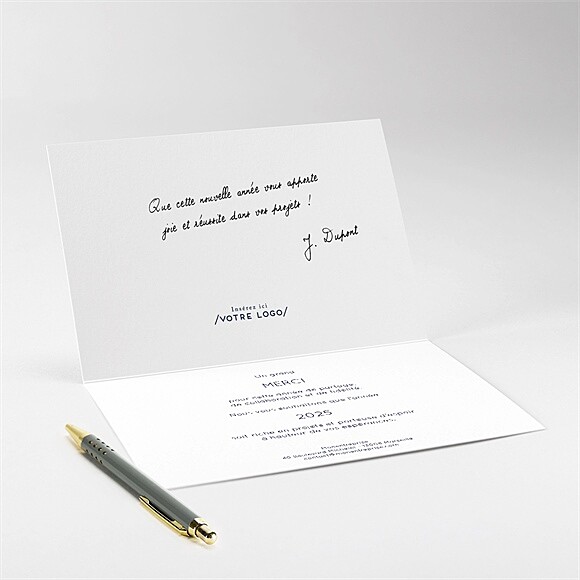 Que cette nouvelle année vous apporte
joie et réussite dans vos projets !
J. Dupont
Insérez ici
/VOTRE LOGO/
Un grand
MERCI
pour cette année de partage
de collaboration et de fidélité
Nous vous souhaitons que l'année
2025
soit riche en projets et porteuse d'espoir
à hauteur de vos espérances.
Monentreprise
contact@monentreprise.com